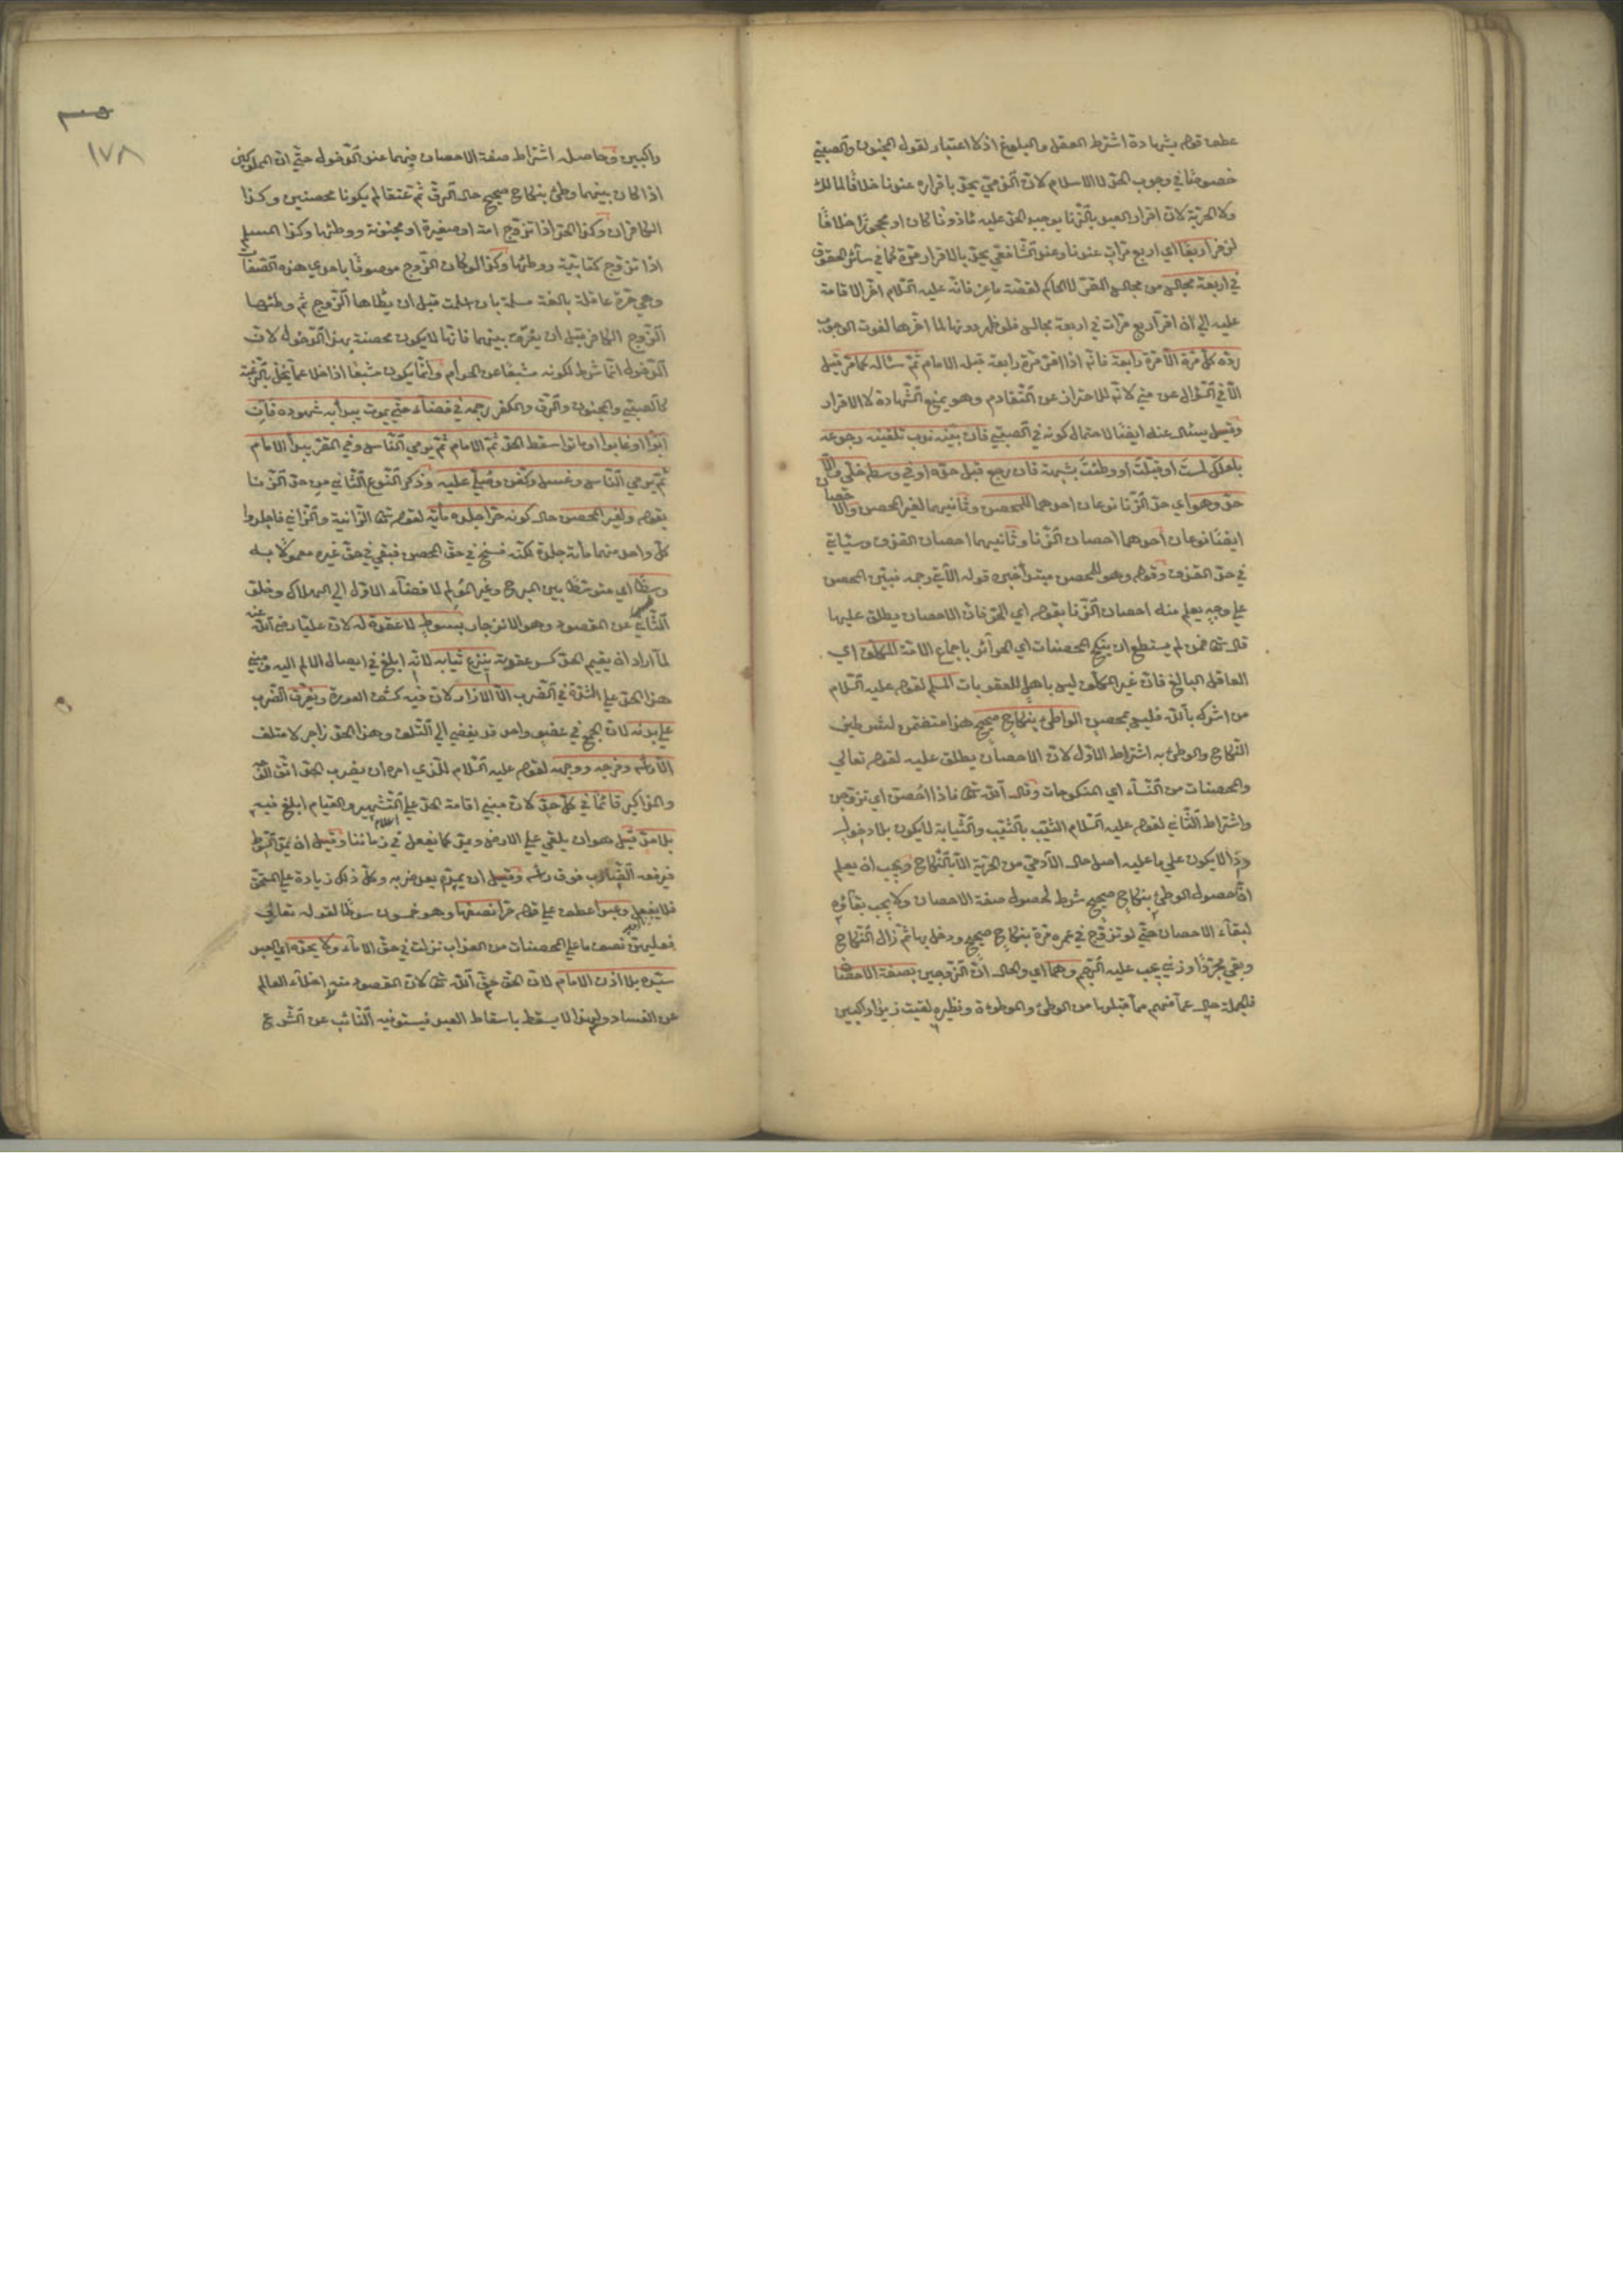 عطف قوله بشهادة اشترط العقل والبلوغ اذ لا اعتبار لقول المجنون والصبي
خصوصا في وجوب الحد لا الاسلام لان الذمي يحد باقراره عندنا خلافا لمالك
ولا الحرية لان اقرار العبد بالزنا يوجب الحد عليه ماذونا كان او محجورا خلافا
لزفر اربعا اي اربع مرات عندنا وعند الشافعي يحد بالاقرار مرة كما في سائر الحقوق
في اربعة مجالس من مجالس المقر لا الحاكم لقصة ماعز فانه عليه السلام اخر الاقامة
عليه الي ان اقر اربع مرات في اربعة مجالس فلو ظهر دونها لما اخرها لثبوت الوجوب
رده كل مرة الا مرة رابعة فانه اذا اقر مرة رابعة قبله الامام ثم ساله كما مر قيل
الا في السؤال عن متي لانه للاحتراز عن التقادم وهو يمنع الشهادة لا الاقرار
وقيل يسئال عنه ايضا لاحتمال كونه في الصبي فان بينه ندب تلقينه رجوعه
بلعلك لمست او قبلت او وطئت بشبهة فان رجع قبل حده او في وسطه خلي والا
حد وهو اي حد الزنا نوعان احدهما للمحصن وثانيهما لغير المحصن والاحصان
ايضا نوعان احدهما احصان الزنا وثانيهما احصان القذف وسياتي
في حد القذف وقوله وهو للمحصن مبتدأ خبره قوله الآتي رجمه فبين المحصن
علي وجه يعلم منه احصان الزنا بقوله اي الحر فان الاحصان يطلق عليها
قال تعالى فمن لم يستطع ان ينكح المحصنات اي الحرائر باجماع الامة المكلف اي
العاقل البالغ فان غير المكلف ليس باهل للعقوبات المسلم لقوله عليه السلام
من اشرك بالله فليس بمحصن الواطئ بنكاح صحيح هذا متضمن لشرطين
النكاح والوطئ به اشتراط الاول لان الاحصان يطلق عليه لقوله تعالي
والمحصنات من النساء اي المنكوحات وقال الله تعالى فاذا احصن اي تزوجن
واشتراط الثاني لقوله عليه السلام الثيب بالثيب والثيابة لا يكون بلا دخول
وذا لا يكون علي ما عليه اصل حال الآدمي من الحرية الا بالنكاح ويجب ان يعلم
ان حصول الوطئ بنكاح صحيح شرط لحصول صفة الاحصان ولا يجب بقاؤه
لبقاء الاحصان حتي لو تزوج في عمره مرة بنكاح صحيح ودخل بها ثم زال النكاح
وبقي مجردا وزني يجب عليه الرجم وهما اي والحال ان الزوجين بصفة الاحصان
فالجملة حال عما فهم مما قبلها من الواطئ والموطؤة ونظيره لقيت زيدا راكبين
راكبين وحاصله اشتراط صفة الاحصان فيهما عند الدخول حتي ان المملوكين
اذا كان بينهما وطئ بنكاح صحيح حال الرق ثم عتقا لم يكونا محصنين وكذا
الكافران وكذا الحر اذا تزوج امة او صغيرة او مجنونة ووطئها وكذا المسلم
اذا تزوج كتابية ووطئها وكذا لو كان الزوج موصوفا باحدي هذه الصفات
وهي حرة عاقلة بالغة مسلمة بان اسلمت قبل ان يطاها الزوج ثم وطئها
الزوج الكافر قبل ان يفرق بينهما فانها لا يكون محصنة بهذا الدخول لان
الدخول انما شرط لكونه مشبعا عن الحرام وانما يكون مشبعا اذا خلا عما يخل بالرغبة
كالصبي والجنون والرق والكفر رجمه في فضاء حتي يموت يبدأ به شهوده فان
ابوا او غابوا او ماتوا سقط الحد ثم الامام ثم يرمي الناس وفي المقر يبدأ الامام
ثم يرمي الناس وغسل وكفن وصلي عليه وذكر النوع الثاني من حد الزنا
بقوله ولغير المحصن حال كونه حرا جلده مأية لقوله تعالى الزانية والزاني فاجلدوا
كل واحد منهما مأية جلدة لكنه نسخ في حق المحصن فبقي في حق غيره معمولا به
وسطا اي متوسطا بين المبرح وغير المؤلم لافضاء الاول الي الهلاك وخلو
الثاني عن المقصود وهو الانزجار بسوط لا عقدة له لان عليا رضي الله عنه
لما اراد ان يقيم الحد كسر عقدته ينزع ثيابه لانه ابلغ في ايصال الالم اليه ومبني
هذا الحد علي الشدة في الضرب الا الازار لان فيه كشف العورة ويفرق الضرب
علي بدنه لان الجمع في عضو واحد قد يفضي الي التلف وهذا الحد زاجر لا متلف
الا رأسه وفرجه ووجهه لقوله عليه السلام للذي امره ان يضرب الحد اتق الوجه
والمذاكير قائما في كل حد لان مبني اقامة الحد علي التشهير والقيام ابلغ فيه
بلا مد قيل هو ان يلقي علي الارض ويمد كما يفعل في زماننا وقيل ان يمد السوط
فيرفعه الضارب فوق رأسه وقيل ان يمده بعد ضربه وكل ذلك زيادة علي المستحق
فلا يفعل وعبدا عطف علي قوله حرا نصفها وهو خمسون سوطا لقوله تعالي
فعليهن نصف ما علي المحصنات من العذاب نزلت في حق الاماء ولا يحده اي العبد
سيده بلا اذن الامام لان الحد حق الله تعالى لان المقصود منه اخلاء العالم
عن الفساد ولهذا لا يسقط باسقاط العبد فيستوفيه النائب عن الشرع
١٧٨